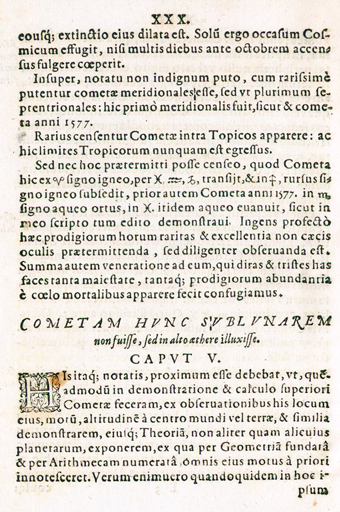 XXX.
eousq; extinctio eius dilata est. Solũ ergo occasum Cos-
micum effugit, nisi multis diebus ante octobrem accen-
sus fulgere cœperit.
Insuper, notatu non indignum puto, cum rarissimè
putentur cometæ meridionales esse, sed vt plurimum se-
ptentrionales: hic primò meridionalis fuit, sicut & come-
ta anni 1577.
Rarius censentur Cometæ intra Topicos apparere: ac
hic limites Tropicorum nunquam est egressus.
Sed nec hoc prætermitti posse censeo, quod Cometa
hic ex ♈ signo igneo, per ♓, ♒, ♑, transijt, & in ♐, rursus si-
gno igneo subsedit, prior autem Cometa anni 1577. in ♏
signo aqueo ortus, in ♓. itidem aqueo euanuit, sicut in
meo scripto tum edito demonstraui. Ingens profectò
hæc prodigiorum horum raritas & excellentia non cæcis
oculis prætermittenda, sed diligenter obseruanda est.
Summa autem veneratione ad eum, qui diras & tristes has
faces tanta maiestate, tantaq; prodigiorum abundantia
è cœlo mortalibus apparere fecit confugiamus.
COMETAM HVNC SVBLVNAREM
non fuisse, sed in alto æthere illuxisse.
CAPVT V.
His itaq; notatis, proximum esse debebat, vt, quẽ-
admodũ in demonstratione & calculo superiori
Cometæ feceram, ex obseruationibus his locum
eius, motũ, altitudinẽ à centro mundi vel terræ, & similia
demonstrarem, eiusq; Theoriã, non aliter quam alicuius
planetarum, exponerem, ex qua per Geometriã fundatâ
& per Arithmecam numeratâ, omnis eius motus à priori
innotesceret. Verum enimuero quandoquidem in hoc i-
psum